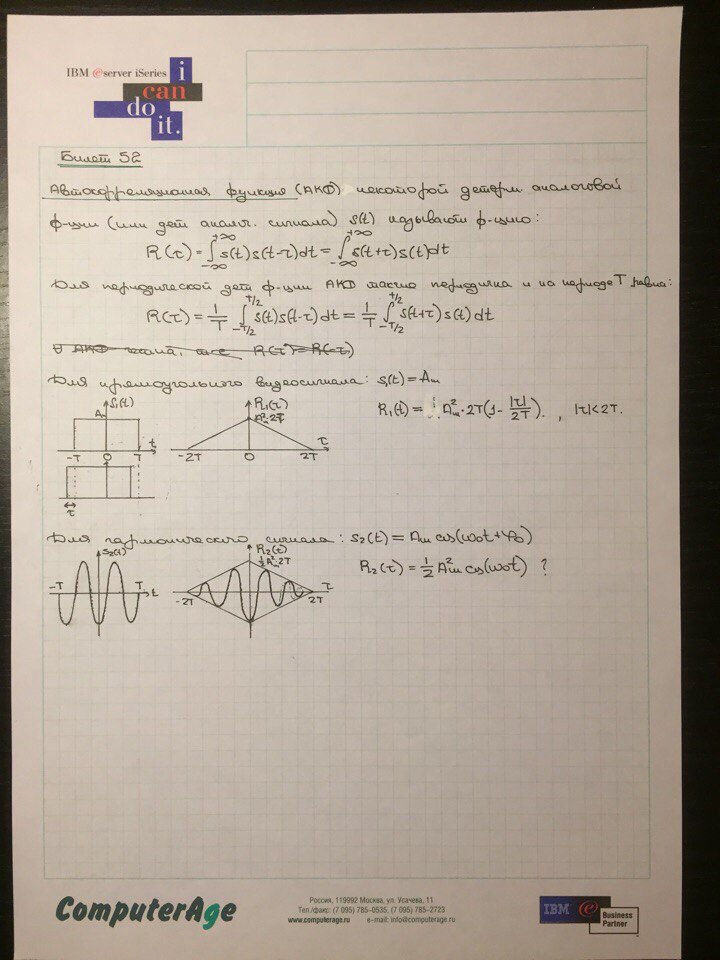 IBM e server iSeries
i
can
do
it.
Билет 52
Автокорреляционная функция (АКФ) некоторой детерм аналоговой
ф-ции (или дет аналог. сигнала) s(t) называют ф-цию:
R(τ) = ∫_{-∞}^{+∞} s(t)s(t-τ)dt = ∫_{-∞}^{+∞} s(t+τ)s(t)dt
Для периодической дет ф-ции АКФ также периодична и на периоде T равна:
R(τ) = 1/T ∫_{-T/2}^{T/2} s(t)s(t-τ)dt = 1/T ∫_{-T/2}^{T/2} s(t+τ)s(t)dt
R(τ) = R(-τ)
Для прямоугольного видеосигнала: s₁(t) = Am
s₁(t) Am -T 0 T t
R₁(τ) A²m·2T -2T 0 2T τ
R₁(t) = A²m·2T(1-|τ|/2T), |τ|<2T.
τ
Для гармонического сигнала: s₂(t) = Am cos(ω₀t+φ₀)
s₂(t) -T T t
R₂(τ) ½A²m·2T -2T 2T τ
R₂(τ) = ½ A²m cos(ω₀t) ?
ComputerAge
Россия, 119992 Москва, ул. Усачева, 11
Тел./факс: (7 095) 785-0535, (7 095) 785-2723
www.computerage.ru e-mail: info@computerage.ru
IBM e Business
Partner